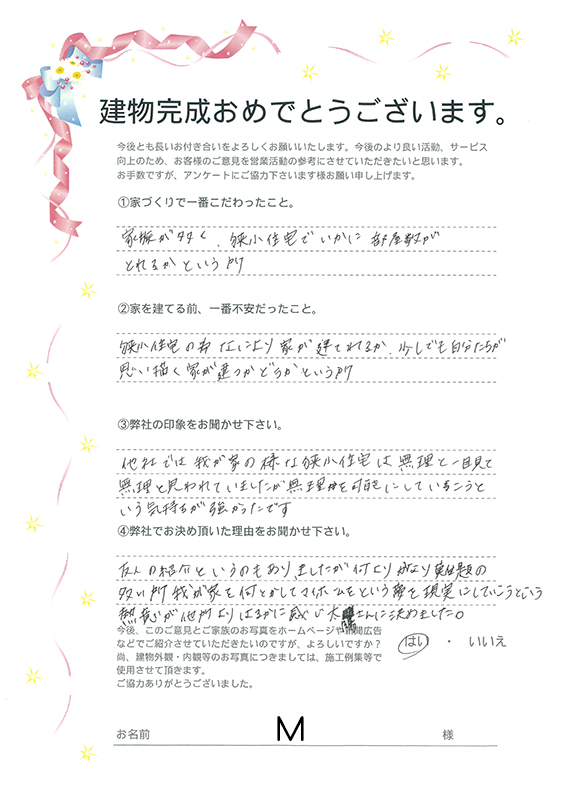 建物完成おめでとうございます。
今後とも長いお付き合いをよろしくお願いいたします。今後のより良い活動、サービス
向上のため、お客様のご意見を営業活動の参考にさせていただきたいと思います。
お手数ですが、アンケートにご協力下さいます様お願い申し上げます。
①家づくりで一番こだわったこと。
家族が多く、狭小住宅でいかに部屋数が
とれるかという所
②家を建てる前、一番不安だったこと。
狭小住宅の為なにより家が建てれるか、少しでも自分たちが
思い描く家が建つかどうかという所
③弊社の印象をお聞かせ下さい。
他社では我が家の様な狭小住宅は無理と一目見て
無理と思われていましたが無理を可能にしていこうと
いう気持ちが強かったです
④弊社でお決め頂いた理由をお聞かせ下さい。
友人の紹介というのもありましたが何より
多い所我が家を何とかしてマイホームをという夢を現実にしていこうという
熱意が他所よりはるかに感じ さんに決めました。
今後、このご意見とご家族のお写真をホームページや新聞広告
などでご紹介させていただきたいのですが、よろしいですか？
はい ・ いいえ
尚、建物外観・内観等のお写真につきましては、施工例集等で
使用させて頂きます。
ご協力ありがとうございました。
お名前 M 様